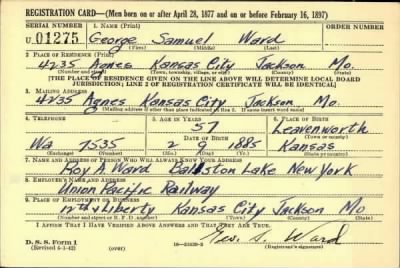 REGISTRATION CARD—(Men born on or after April 28, 1877 and on or before February 16, 1897)
SERIAL NUMBER 1. NAME (Print) ORDER NUMBER
U 01275 George Samuel Ward
(First) (Middle) (Last)
2. PLACE OF RESIDENCE (Print)
4235 Agnes Kansas City Jackson Mo.
(Number and street) (Town, township, village, or city) (County) (State)
[THE PLACE OF RESIDENCE GIVEN ON THE LINE ABOVE WILL DETERMINE LOCAL BOARD
JURISDICTION; LINE 2 OF REGISTRATION CERTIFICATE WILL BE IDENTICAL]
3. MAILING ADDRESS
4235 Agnes Kansas City Jackson Mo.
[Mailing address if other than place indicated on line 2. If same insert word same]
4. TELEPHONE 5. AGE IN YEARS 6. PLACE OF BIRTH
57 Leavenworth
DATE OF BIRTH (Town or county)
Wa 7535 2 9 1885 Kansas
(Exchange) (Number) (Mo.) (Day) (Yr.) (State or country)
7. NAME AND ADDRESS OF PERSON WHO WILL ALWAYS KNOW YOUR ADDRESS
Roy A. Ward Ballston Lake New York
8. EMPLOYER'S NAME AND ADDRESS
Union Pacific Railway
9. PLACE OF EMPLOYMENT OR BUSINESS
12th & Liberty Kansas City Jackson Mo
(Number and street or R. F. D. number) (Town) (County) (State)
I AFFIRM THAT I HAVE VERIFIED ABOVE ANSWERS AND THAT THEY ARE TRUE.
D. S. S. Form 1
(Revised 4-1-42) (over) Geo. S. Ward